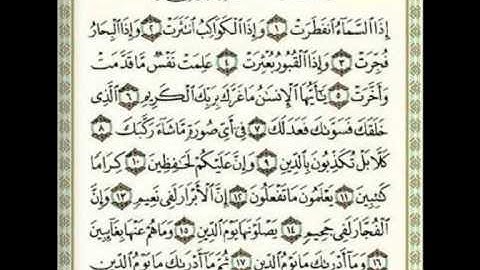 إِذَا السَّمَاءُ انفَطَرَتْ ١ وَإِذَا الْكَوَاكِبُ انتَثَرَتْ ٢ وَإِذَا الْبِحَارُ
فُجِّرَتْ ٣ وَإِذَا الْقُبُورُ بُعْثِرَتْ ٤ عَلِمَتْ نَفْسٌ مَّا قَدَّمَتْ
وَأَخَّرَتْ ٥ يَٰٓأَيُّهَا الْإِنسَٰنُ مَا غَرَّكَ بِرَبِّكَ الْكَرِيمِ ٦ الَّذِي
خَلَقَكَ فَسَوَّىٰكَ فَعَدَلَكَ ٧ فِيٓ أَيِّ صُورَةٍ مَّا شَآءَ رَكَّبَكَ ٨
كَلَّا بَلْ تُكَذِّبُونَ بِالدِّينِ ٩ وَإِنَّ عَلَيْكُمْ لَحَٰفِظِينَ ١٠ كِرَامًا
كَٰتِبِينَ ١١ يَعْلَمُونَ مَا تَفْعَلُونَ ١٢ إِنَّ الْأَبْرَارَ لَفِي نَعِيمٍ ١٣ وَإِنَّ
الْفُجَّارَ لَفِي جَحِيمٍ ١٤ يَصْلَوْنَهَا يَوْمَ الدِّينِ ١٥ وَمَا هُمْ عَنْهَا بِغَآئِبِينَ
١٦ وَمَآ أَدْرَىٰكَ مَا يَوْمُ الدِّينِ ١٧ ثُمَّ مَآ أَدْرَىٰكَ مَا يَوْمُ الدِّينِ